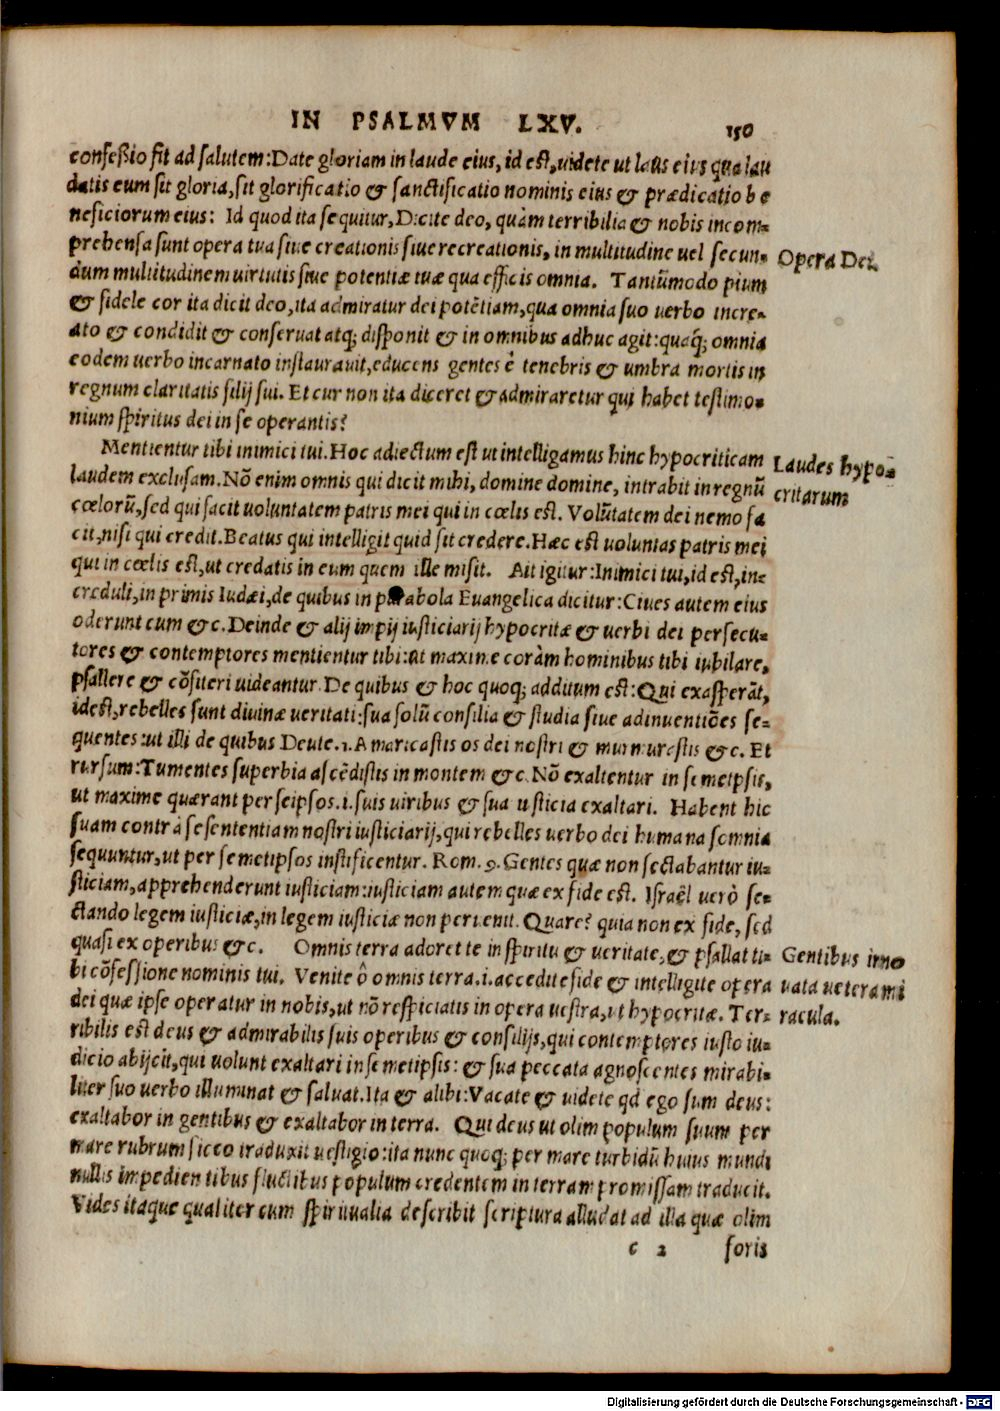 IN PSALMVM LXV. 150
confeßio fit ad salutem: Date gloriam in laude eius, id est, uidete ut laus eius qua lau
datis eum sit gloria, sit glorificatio & sanctificatio nominis eius & prædicatio be
neficiorum eius: Id quod ita sequitur, Dicite deo, quàm terribilia & nobis incom-
prehensa sunt opera tua siue creationis siue recreationis, in multitudine uel secun-
Opera Dei.
dum multitudinem uirtutis siue potentiæ tuæ qua efficis omnia. Tantũmodo pium
& fidele cor ita dicit deo, ita admiratur dei potẽtiam, qua omnia suo uerbo incre-
ato & condidit & conseruat atq; disponit & in omnibus adhuc agit: quaq́; omnia
eodem uerbo incarnato instaurauit, educens gentes è tenebris & umbra mortis in
regnum claritatis filij sui. Et cur non ita diceret & admiraretur qui habet testimo-
nium spiritus dei in se operantis?
Mentientur tibi inimici tui. Hoc adiectum est ut intelligamus hinc hypocriticam
Laudes hypo-
laudem exclusam. Nõ enim omnis qui dicit mihi, domine domine, intrabit in regnũ
critarum
cœlorũ, sed qui facit uoluntatem patris mei qui in cœlis est. Volũtatem dei nemo fa
cit, nisi qui credit. Beatus qui intelligit quid sit credere. Hæc est uoluntas patris mei
qui in cœlis est, ut credatis in eum quem ille misit. Ait igitur: Inimici tui, id est, in-
creduli, in primis Iudæi, de quibus in parabola Euangelica dicitur: Ciues autem eius
oderunt eum &c. Deinde & alij impij iusticiarij hypocritæ & uerbi dei persecu-
tores & contemptores mentientur tibi: ut maxime coràm hominibus tibi iubilare,
psallere & cõfiteri uideantur. De quibus & hoc quoq; additum est: Qui exasperãt,
id est, rebelles sunt diuinæ ueritati: sua solũ consilia & studia siue adinuentiões se-
quentes: ut illi de quibus Deute. 1. Amaricastis os dei nostri & murmurestis &c. Et
rursum: Tumentes superbia ascẽdistis in montem &c. Nõ exaltentur in semetpsis,
ut maxime quærant per seipsos .i. suis uiribus & sua iusticia exaltari. Habent hic
suam contrà se sententiam nostri iusticiarij, qui rebelles uerbo dei humana somnia
sequuntur, ut per semetipsos iustificentur. Rom. 9. Gentes quæ non sectabantur iu-
sticiam, apprehenderunt iusticiam: iusticiam autem quæ ex fide est. Israël uerò se-
ctando legem iusticiæ, in legem iusticiæ non peruenit. Quare? quia non ex fide, sed
quasi ex operibus &c. Omnis terra adoret te in spiritu & ueritate, & psallat ti-
Gentibus inno
bi cõfessione nominis tui. Venite ô omnis terra .i. accedite fide & intelligite opera
uata uetera mi
dei quæ ipse operatur in nobis, ut nõ respiciatis in opera uestra, ut hypocritæ. Ter-
racula.
ribilis est deus & admirabilis suis operibus & consilijs, qui contemptores iusto iu-
dicio abijcit, qui uolunt exaltari in semetipsis: & sua peccata agnoscentes mirabi-
liter suo uerbo illuminat & saluat. Ita & alibi: Vacate & uidete qd ego sum deus:
exaltabor in gentibus & exaltabor in terra. Qui deus ut olim populum suum per
mare rubrum sicco traduxit uestigio: ita nunc quoq; per mare turbidũ huius mundi
nullis impedientibus fluctibus populum credentem in terram promissam traducit.
Vides itaque qualiter cum spiritualia describit scriptura alludat ad illa quæ olim
c 2 foris
Digitalisierung gefördert durch die Deutsche Forschungsgemeinschaft - DFG